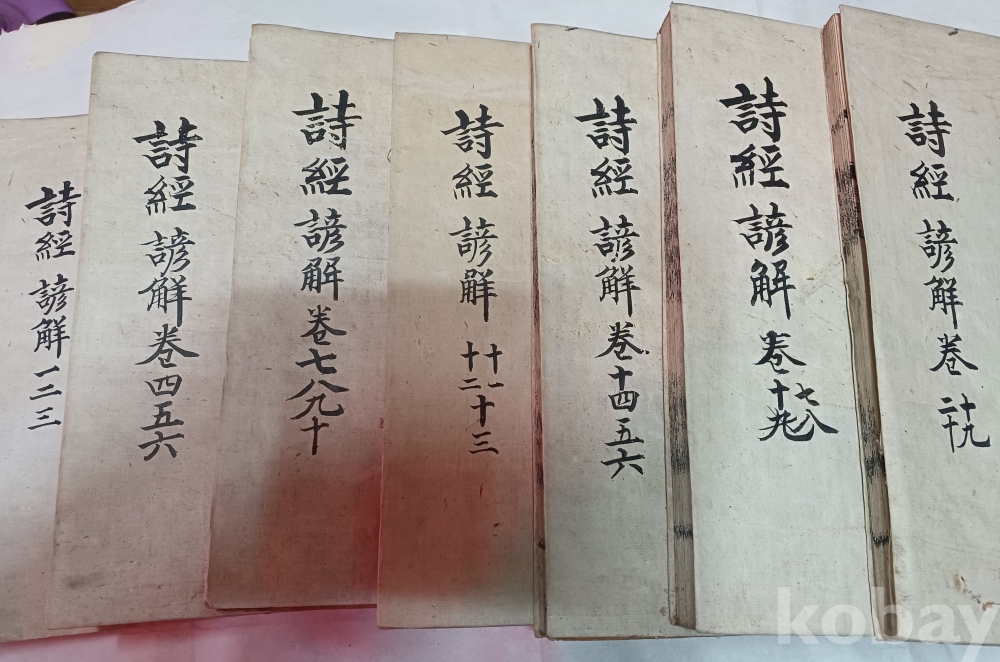 詩經 諺解 一二三
詩經 諺解 卷四五六
詩經 諺解 卷七八九十
詩經 諺解 十一 十二 十三
詩經 諺解 卷十四五六
詩經 諺解 卷十七八九
詩經 諺解 卷 十九 二十
kobay